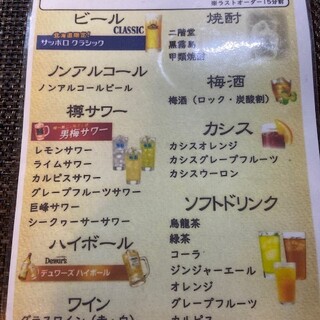 ※ラストオーダー15分前
ビール
北海道限定
CLASSIC
サッポロ クラシック
ノンアルコール
ノンアルコールビール
樽サワー
男梅サワー
レモンサワー
ライムサワー
カルピスサワー
グレープフルーツサワー
巨峰サワー
シークヮーサーサワー
ハイボール
Dewar's
デュワーズ ハイボール
ワイン
グラスワイン（赤・白）
焼酎
二階堂
黒霧島
甲類焼酎
梅酒
梅酒（ロック・炭酸割）
カシス
カシスオレンジ
カシスグレープフルーツ
カシスウーロン
ソフトドリンク
烏龍茶
緑茶
コーラ
ジンジャーエール
オレンジ
グレープフルーツ
カルピス